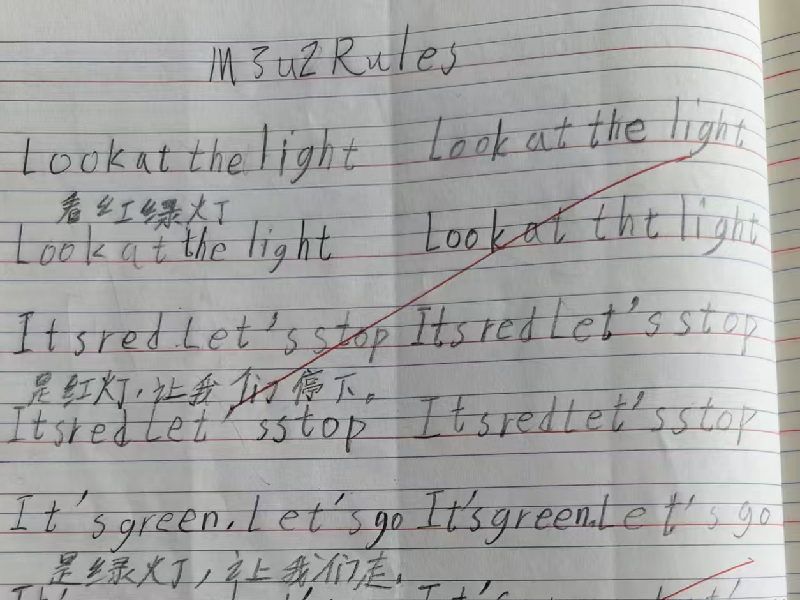 M3u2 Rules
Look at the light Look at the light
看红绿灯
Look at the light Look at tht light
Itsred Let's stop Itsred Let's stop
是红灯,让我们停下。
Itsred Let's stop Itsred Let's stop
It's green. Let's go It's green. Let's go
是绿灯,让我们走.